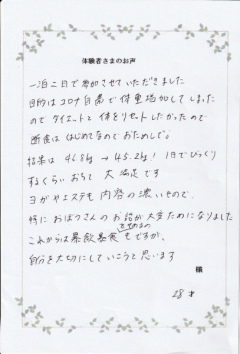 体験者さまのお声
一泊二日で参加させていただきました
目的はコロナ自粛で体重増加してしまった
のでダイエットと体をリセットしたかったので
断食ははじめてなのでおためしで。
結果は 46.8kg → 45.2kg! 1日でびっくり
するくらいおちて 大満足です
ヨガやエステも内容の濃いもので、
特に おばつさんのお話が大変ためになりました
これからは暴飲暴食をせめるのもですが、
自分を大切にしていこうと思います
様
28才